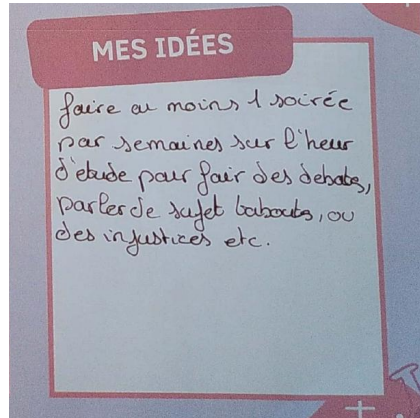 MES IDÉES
faire au moins 1 soirée
par semaines sur l'heur
d'étude pour fair des debats,
parler de sujet tabouts, ou
des injustices etc.